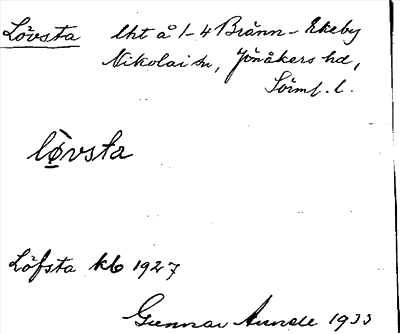 Lövsta lht å 1-4 Bränn-Ekeby
Nikolai sn, Jönåkers hd,
Sörml. l.
lø̀vsta
Löfsta kb 1927
Gunnar Linde 1933